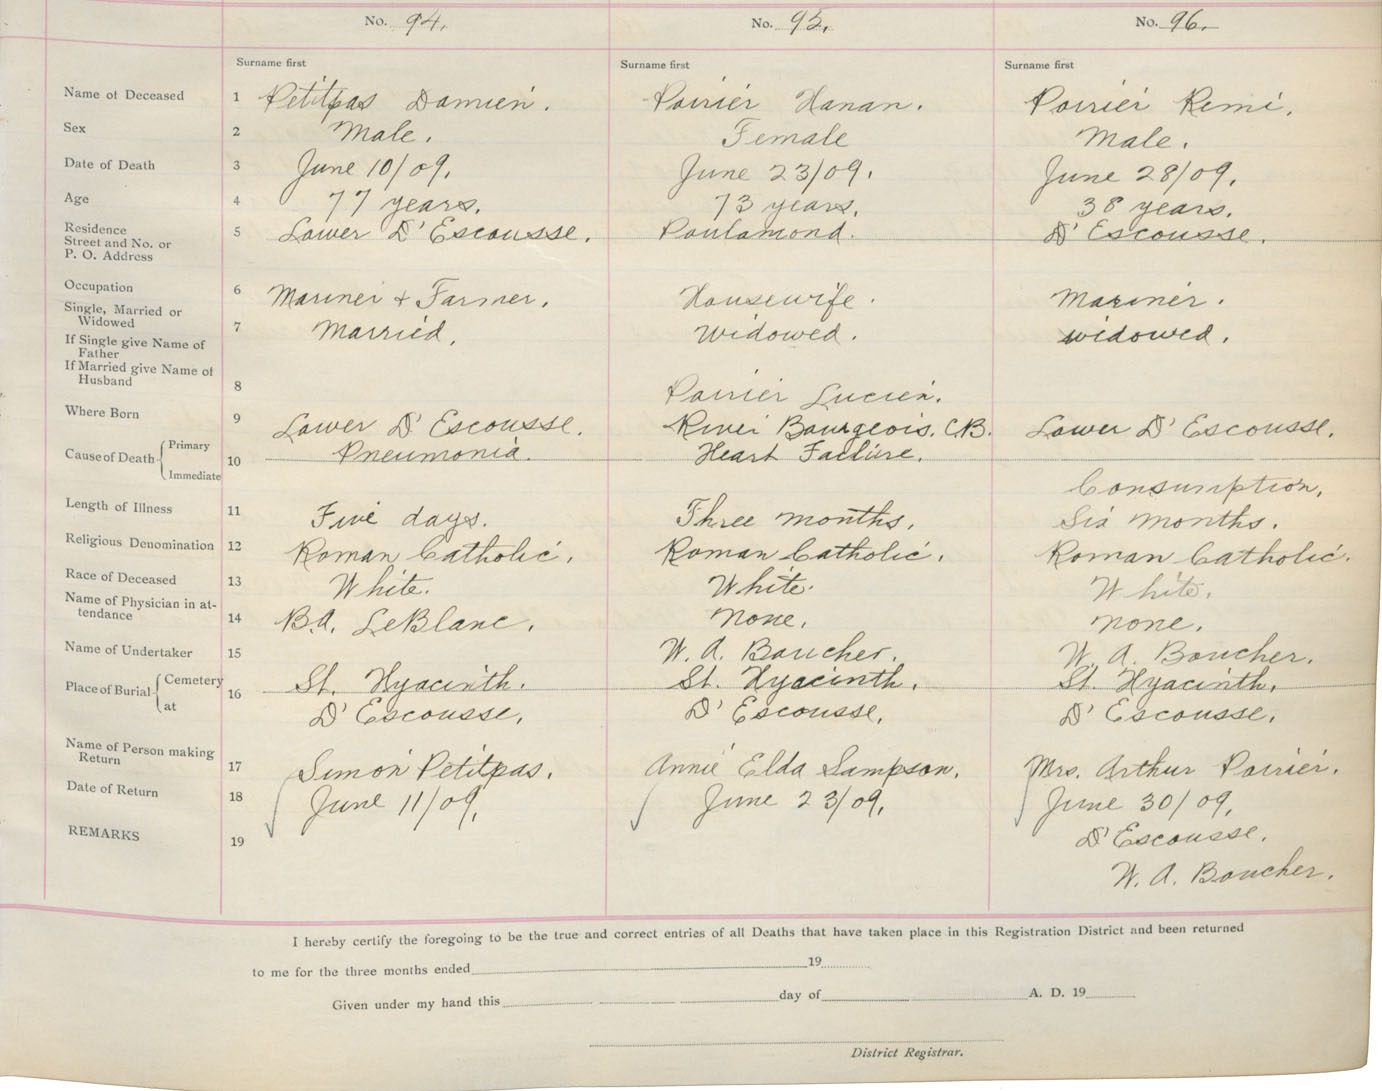 No. 94. No. 95. No. 96.
Surname first Surname first Surname first
Name of Deceased 1 Petitpas Damien. Poirier Hanan. Poirier Remi.
Sex 2 Male. Female Male.
Date of Death 3 June 10/09. June 23/09. June 28/09.
Age 4 77 years. 73 years. 38 years.
Residence
Street and No. or 5 Lower D'Escousse. Poulamond. D'Escousse.
P. O. Address
Occupation 6 Mariner & Farmer. Housewife. Mariner.
Single, Married or
Widowed 7 Married. Widowed. widowed.
If Single give Name of
Father
If Married give Name of
Husband 8 Poirier Lucien.
Where Born 9 Lower D'Escousse. River Bourgeois. C.B. Lower D'Escousse.
Cause of Death Primary 10 Pneumonia. Heart Failure.
Immediate Consumption.
Length of Illness 11 Five days. Three months. Six months.
Religious Denomination 12 Roman Catholic. Roman Catholic. Roman Catholic.
Race of Deceased 13 White. White. White.
Name of Physician in at-
tendance 14 B.A. LeBlanc. none. none.
Name of Undertaker 15 W. A. Boucher. W. A. Boucher.
Place of Burial Cemetery 16 St. Hyacinth. St. Hyacinth. St. Hyacinth.
at D'Escousse. D'Escousse. D'Escousse.
Name of Person making
Return 17 Simon Petitpas. Annie Elda Sampson. Mrs. Arthur Poirier.
Date of Return 18 June 11/09. June 23/09. June 30/09.
REMARKS 19 D'Escousse.
W. A. Boucher.
I hereby certify the foregoing to be the true and correct entries of all Deaths that have taken place in this Registration District and been returned
to me for the three months ended 19
Given under my hand this day of A. D. 19
District Registrar.